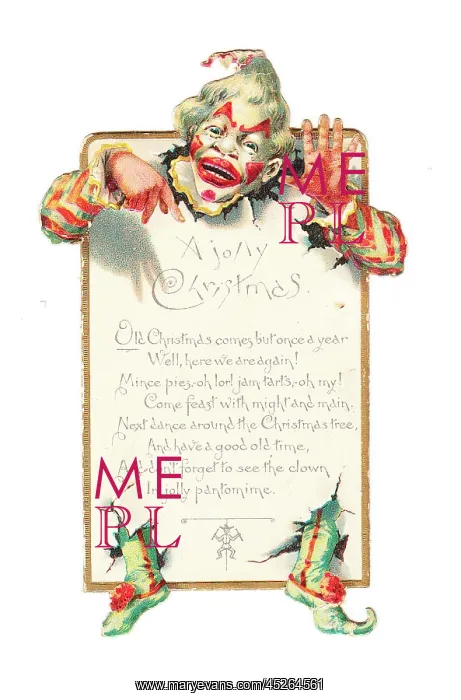 A jolly
Christmas.
Old Christmas comes but once a year
Well, here we are again!
Mince pies,-oh lor! jam tarts,-oh my!
Come feast with might and main.
Next dance around the Christmas tree,
And have a good old time,
And don't forget to see the clown
In jolly pantomime.
ME
PL
ME
PL
www.maryevans.com/45264561